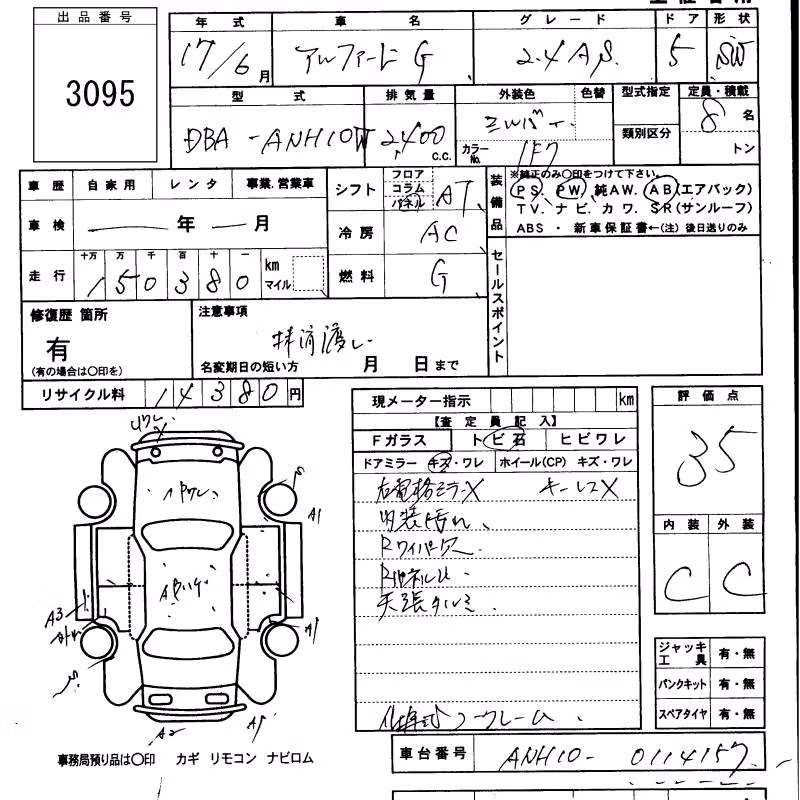 出品番号
3095
年式 車名 グレード ドア 形状
17/6月 アルファード G 2.4 AS 5 SW
型式 排気量 外装色 色替 型式指定 定員・積載
DBA-ANH10W 2400 c.c. カラーNo. 1F7 類別区分 8名
トン
車歴 自家用 レンタ 事業.営業車
車検 年 月
走行 十万 万 千 百 十 一 km マイル
150380
シフト フロア コラム パネル AT
冷房 AC
燃料 G
装備品
※純正のみ〇印をつけて下さい。
PS. PW. 純AW. AB(エアバック)
TV. ナビ. カワ. SR(サンルーフ)
ABS ・ 新車保証書←(注) 後日送りのみ
セールスポイント
修復歴 箇所
有
(有の場合は〇印を)
注意事項
抹消渡し
名変期日の短い方 月 日まで
リサイクル料 14380円
現メーター指示 km
【査定員記入】
Fガラス トビ石 ヒビワレ
ドアミラー キズ・ワレ ホイール(CP) キズ・ワレ
右電格ミラーX キーレスX
内装汚れ、
Rワイパー欠
天張タルミ
評価点
35
内装 外装
C C
ワレ
A1
A3
A2
ジャッキ工具 有・無
パンクキット 有・無
スペアタイヤ 有・無
事務局預り品は〇印 カギ リモコン ナビロム
車台番号 ANH10-0114157